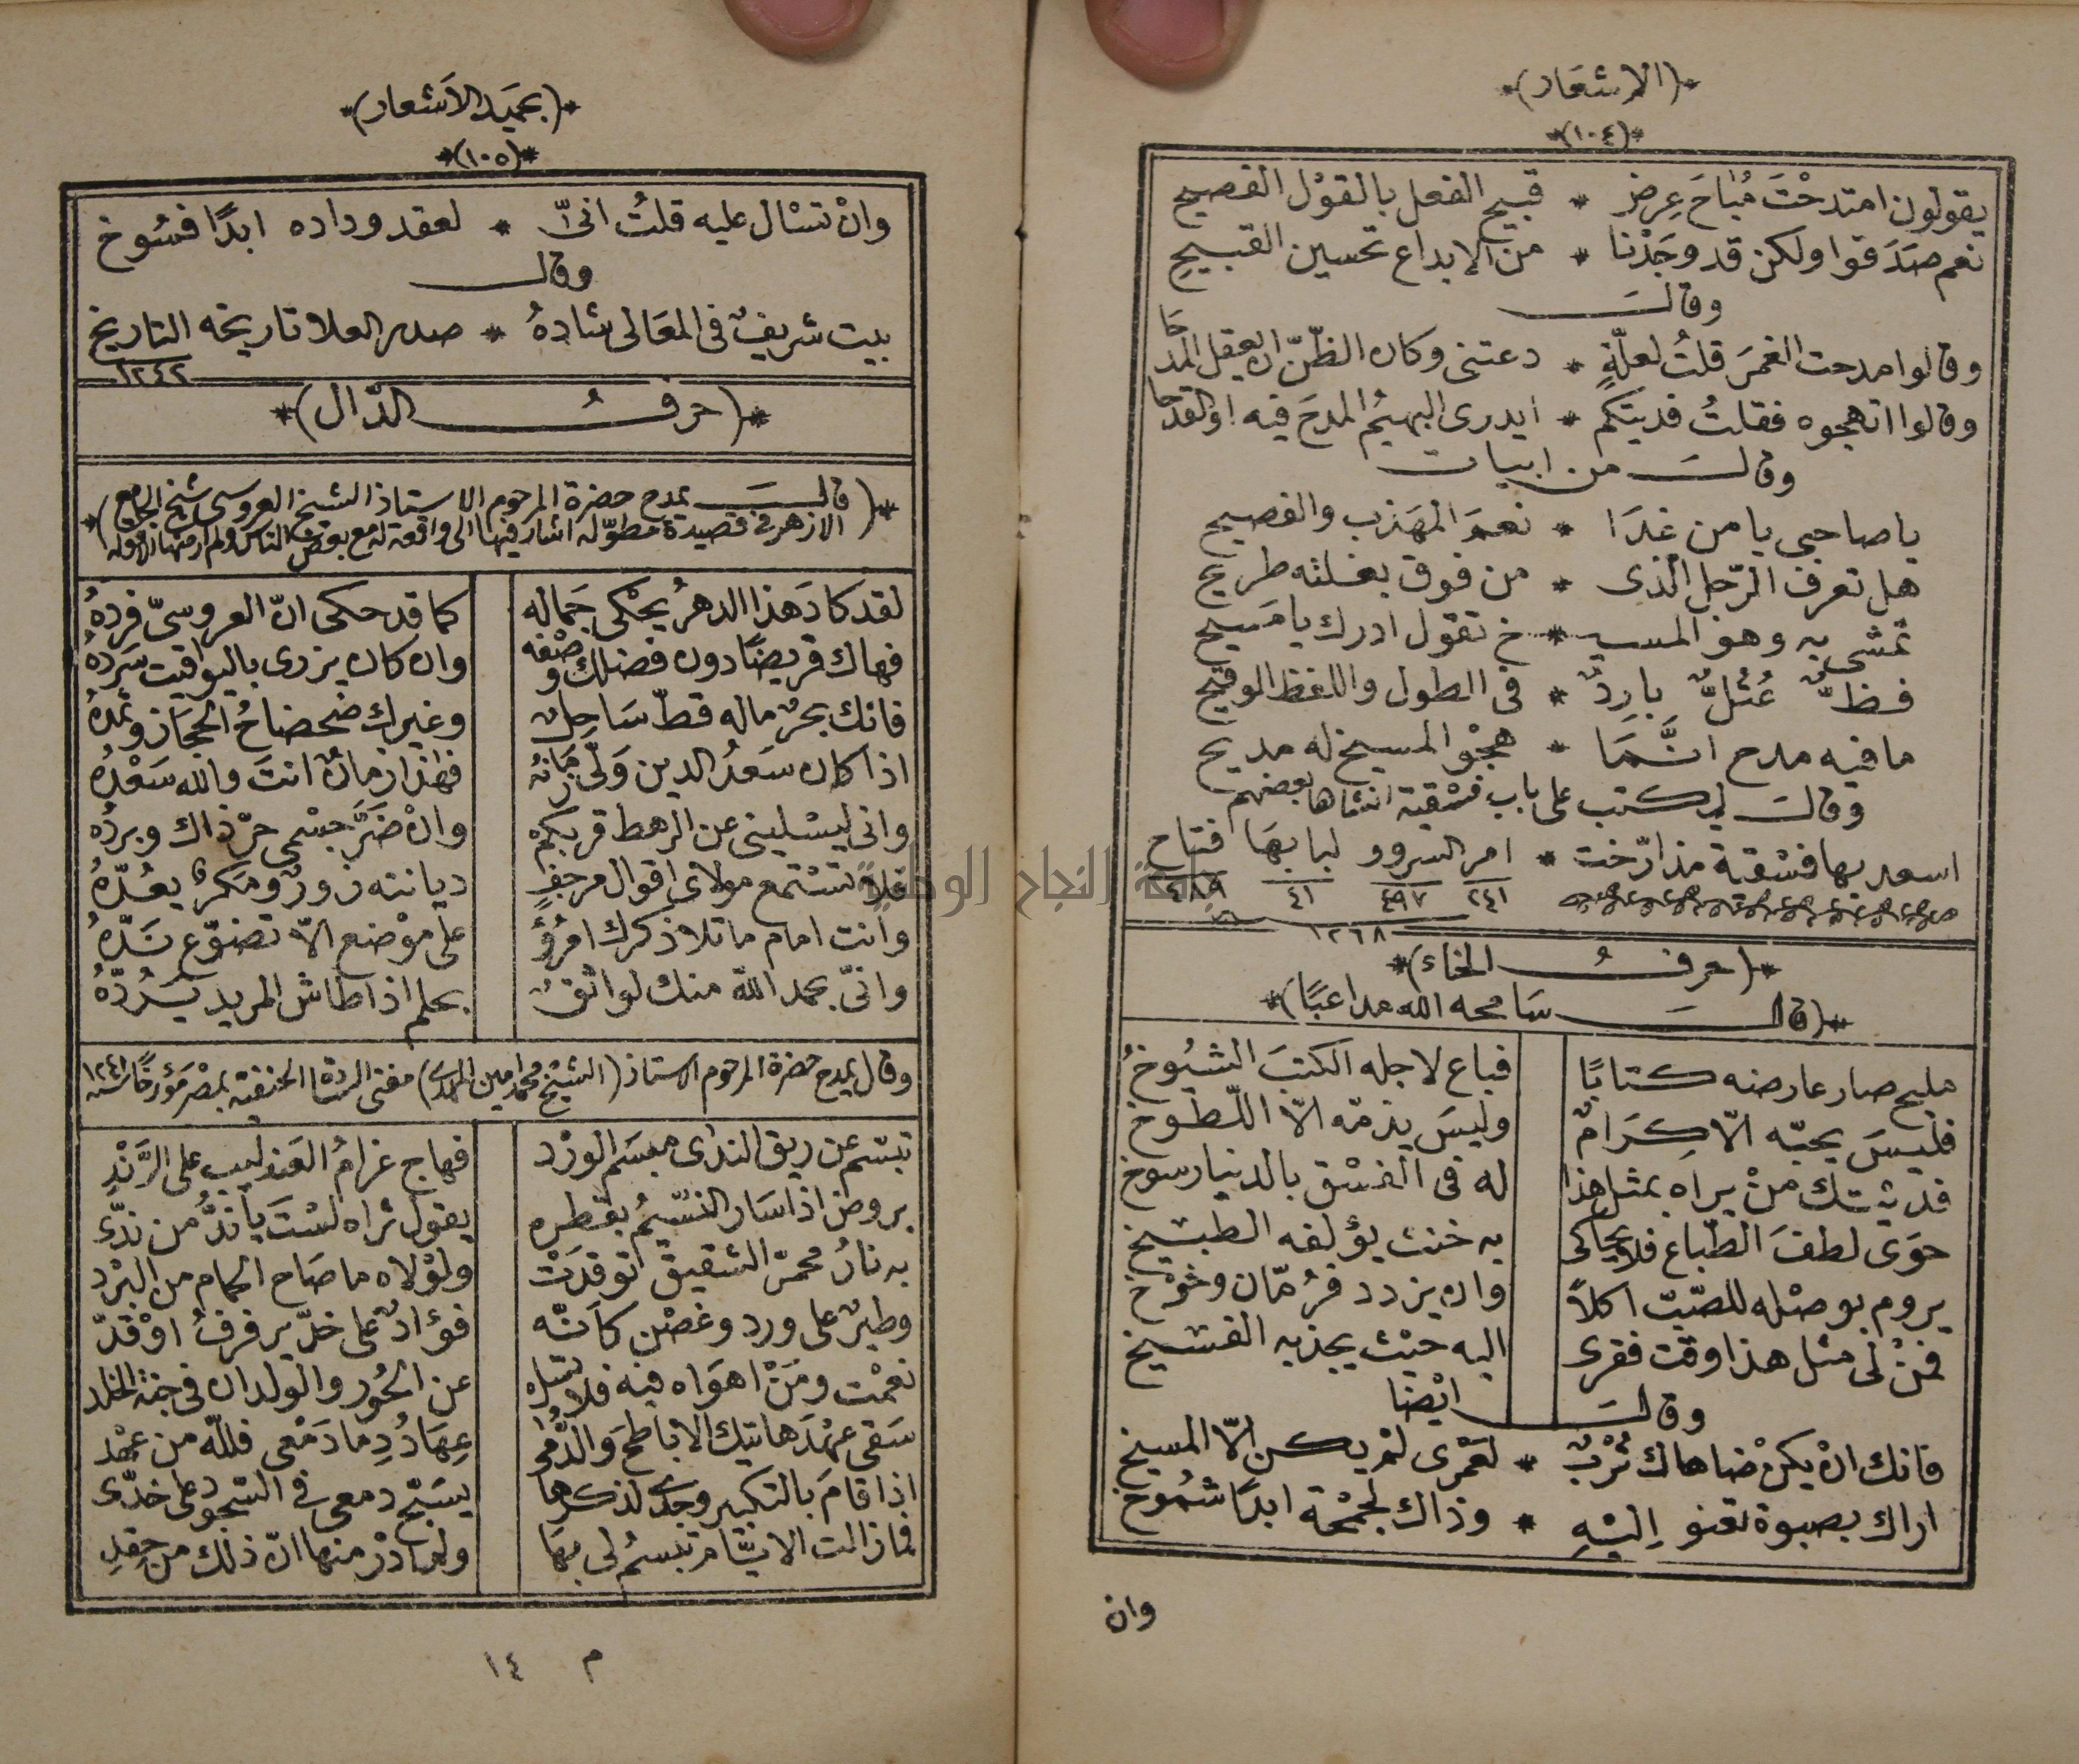 *(الاشعار)*
*(١٠٤)*
يقولون امتدحْتَ مُبَاحَ عِرضٍ * قبيح الفعل بالقوْل الفصيح
نعم صَدَقوا ولكن قد وَجَدْنا * من الابداع تحسين القبيح
وقالَ
وقالوا مدحت الغمرَ قلتُ لعلّةٍ * دعتنى وكان الظنّ ان يعقل المدحَا
وقالوا اتهجوه فقلتُ فديتكم * ايدرى البهيمُ المدحَ فيه او القدحا
وقالَ من ابيات
ياصاحبى يا من غدَا * نعمَ المهَذب والفصيح
هل تعرف الرّجل الّذى * من فوق بغلته طريح
تمشى به وهو المسيـ * ـخ تقول ادرك يا مَسيح
فظٌّ عُتُلٌّ بارِدٌ * فى الطول واللفظ الوقيح
ما فيه مدح انَّمَا * هجْو المسيخ له مديح
وقالَ ليكتب على باب فسْقية انشاها بعضهم
اسعد بها فسْقية مذ ارّخت * امر السرور لبابهَا فتاح
٢٤١ ٤٩٧ ٤١ ٤٨٩
١٢٦٨
*(حرفُ الخاء)*
*(قالَ سَامحه الله مداعبًا)*
مليح صار عارضه كتابًا فباع لاجله الكتبَ الشيُوخُ
فليسَ يحبّه الّا كِرَامٌ وليسَ يذمّه الّا اللّطوخ
فديتك منْ يراه بمثل هذا له فى الفسْق بالدنيا رسوخ
حوَى لطفَ الطّباع فلا يحاكى به خنث يؤلفه الطبيخ
يروم بوصْله للصّبّ اكلاً وان يزدد فرُمّان وخوْخ
فمنْ لى مثل هذا وقت فقرى اليه حيْث يجذبه الفسيخ
وقالَ ايْضا
فانك انْ يكنْ ضاهاك تُرْبٌ * لعَمْرى لمْ يكن الّا المسيخ
اراك بصبوة تعنو اِليْهِ * وذاك لجمْحَة ابدًا شمُوخ
وان
*(بحميَد الاَشعار)*
*(١٠٥)*
وانْ تسْال عليه قلتُ انىّ * لعقد وداده ابدًا فسُوخ
وقال
بيت شريفٌ فى المعَالى شادهُ * صدر العلا تاريخه التاريخ
١٢٤٢
*(حرفُ الدّال)*
*(قالَ يمدح حضرة المرحوم الاستاذ الشيخ العروسى شيخ الجامع
الازهر فى قصيدة مطوّلة اشار فيها الى واقعة له مع بعض الناس ولم ار منها الا قوله)*
لقد كادَ هذا الدهرُ يحْكى جَماله كما قد حكى انّ العروسىّ فردهُ
فهاك قريضًا دون فضلك وصْفه وان كان يزرى باليواقيت سَردهُ
فانك بحرٌ ماله قطّ سَاحِلٌ وغيرك ضحضاحُ الحجَاز وثمدهُ
اذا كان سَعدُ الدين وَلّى زمَانهُ فهٰذا زمانٌ انتَ والله سَعْدُه
وانى ليسْلينى عن الرهط قربكمْ وانْ ضَرَّ جسْمى حرّ ذاك وبردُه
فلا تسْتمع مولاى اقوال مرجفٍ ديانته زورٌ ومكرٌ يعُدّهُ
وانت امام ما تلا ذكرك امُرؤٌ على موْضع الاّ تضوّع نَدّهُ
وانىّ بحمد اللّه منك لواثقٌ بحلم اذا طاش المريد يَرُدّهُ
وقال يمدح حضرة المرحوم الاستاذ (الشيخ محمد امين المهدى) مفتى السّادة الحنفيّة بمصْر مؤرخًا سنة ١٢٤١
تبسّم عن ريق الندٰى مبسَم الوَرْد فهاج غرامُ العَندليب على الرَّنْدِ
بروض اذا سَار النسّيمُ بقطره يقول ثراه لسْتَ يا نَدُّ من ندّى
به نارُ محمرّ الشقيق توقدَتْ ولوْلاه ما صَاح الحمام من البرْد
وطيرٌ على ورد وغصْن كاَنّه فؤادٌ على خدّ يرفرفُ اوْ قدّ
نعمْت ومَنْ اهوَاه فيه فلا تسَل عن الحُور والولدان فى جنة الخلد
سَقى عهْدَ هاتيك الاباطحَ والدُّمٰى عِهَادُ دِما دَمْعى فللّه من عهْد
اذا قامَ بالتكبير وجدى لذكرها يسَبّح دمعى فى السّجود على خدّى
فما زالت الايّام تبسمُ لى بهَا ولم ادْر منها انّ ذلك من حِقدِ
م ١٤